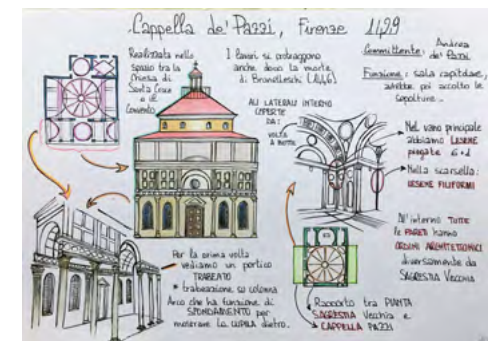 Cappella de' Pazzi, Firenze 1429
Realizzata nello
spazio tra la
Chiesa di
Santa Croce
e il
Convento
I lavori si protraggono
anche dopo la morte
di Brunelleschi (1446)
Committente: Andrea
de' Pazzi
Funzione: sala capitolare,
poi accolto le
sepolture.
ALI LATERALI INTERNO
COPERTE
DA:
VOLTA
A BOTTE
Nel vano principale
abbiamo LESENE
piegate
Nella scarsella:
LESENE FILIFORMI
All'interno TUTTE
le PARETI hanno
ORDINI ARCHITETTONICI
diversamente da
SAGRESTIA VECCHIA
Per la prima volta
vediamo un portico
TRABEATO
* trabeazione su colonna
Arco che ha funzione di
SFONDAMENTO per
mostrare la CUPOLA dietro.
Rapporto tra PIANTA
SAGRESTIA Vecchia e
CAPPELLA PAZZI